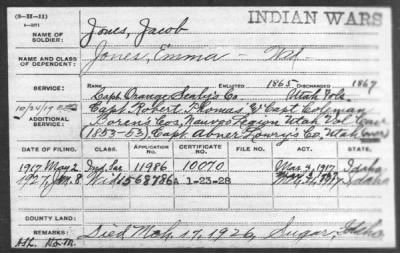 (3-H-11) INDIAN WARS
NAME OF SOLDIER: Jones, Jacob
NAME AND CLASS OF DEPENDENT: Jones, Emma - Wid.
SERVICE: RANK ENLISTED 1865 DISCHARGED 1867
Capt Orange Sealy's Co. Utah Vols
ADDITIONAL SERVICE: Capt. Robert Thomas & Capt Coleman
Boren's Cos, Nauvoo Legion Utah Vol Cav
(1853-53), Capt. Abner Lowry's Co, Utah
DATE OF FILING. CLASS. APPLICATION NO. CERTIFICATE NO. FILE NO. ACT. STATE.
1917 May 2 Ind. Sur. 11986 10070 Mar. 4, 1917 Idaho
1927 Jan. 8 Wid 1568786 A 1-23-28 Idaho
COUNTY LAND:
REMARKS: Died Mch. 17, 1926, Sugar, Idaho